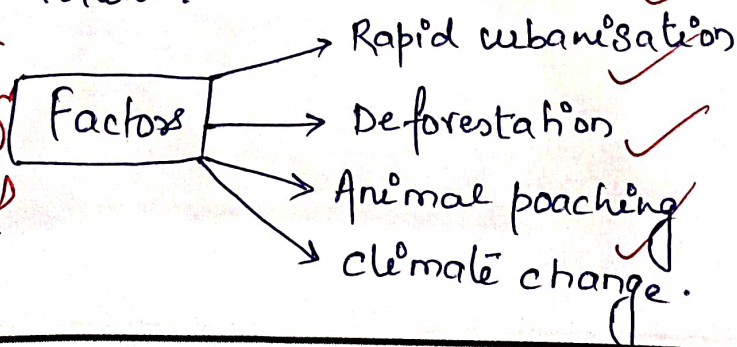 Factors
Rapid urbanisation
Deforestation
Animal poaching
Climate change.